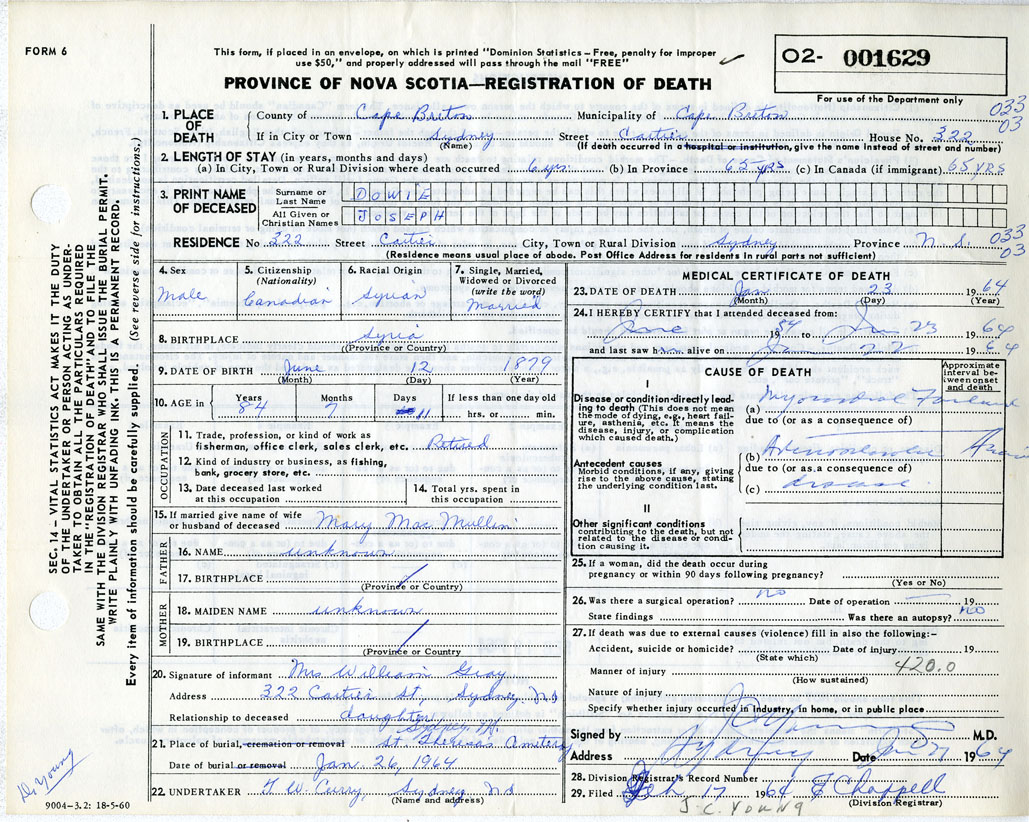 FORM 6
This form, if placed in an envelope, on which is printed "Dominion Statistics – Free, penalty for improper
use $50," and properly addressed will pass through the mail "FREE"
O2- 001629
PROVINCE OF NOVA SCOTIA—REGISTRATION OF DEATH
For use of the Department only
1. PLACE OF DEATH
County of Cape Breton Municipality of Cape Breton 033
If in City or Town Sydney Street Cartier House No. 322 03
(Name) (If death occurred in a hospital or institution, give the name instead of street and number)
2. LENGTH OF STAY (in years, months and days)
(a) In City, Town or Rural Division where death occurred 6 yrs. (b) In Province 65 yrs (c) In Canada (if immigrant) 65 YRS
3. PRINT NAME OF DECEASED
Surname or Last Name DOWIE
All Given or Christian Names JOSEPH
RESIDENCE No 322 Street Cartier City, Town or Rural Division Sydney Province N.S. 033
03
(Residence means usual place of abode. Post Office Address for residents in rural parts not sufficient)
4. Sex
Male
5. Citizenship
(Nationality)
Canadian
6. Racial Origin
Syrian
7. Single, Married,
Widowed or Divorced
(write the word)
Married
8. BIRTHPLACE Syria
((Province or Country)
9. DATE OF BIRTH June 12 1879
(Month) (Day) (Year)
10. AGE in
Years Months Days If less than one day old
84 7 11 hrs. or min.
OCCUPATION
11. Trade, profession, or kind of work as
fisherman, office clerk, sales clerk, etc. Retired
12. Kind of industry or business, as fishing,
bank, grocery store, etc.
13. Date deceased last worked
at this occupation
14. Total yrs. spent in
this occupation
15. If married give name of wife
or husband of deceased Mary Mac Mullin
FATHER
16. NAME unknown
17. BIRTHPLACE
(Province or Country)
MOTHER
18. MAIDEN NAME unknown
19. BIRTHPLACE
(Province or Country
20. Signature of informant Mrs William Gray
Address 322 Cartier St, Sydney NS
Relationship to deceased daughter
Sydney, N.S.
21. Place of burial, cremation or removal St Theresa's
Date of burial or removal Jan 26, 1964
22. UNDERTAKER T. W. Curry, Sydney NS
(Name and address)
MEDICAL CERTIFICATE OF DEATH
23. DATE OF DEATH Jan 23 1964
(Month) (Day) (Year)
24. I HEREBY CERTIFY that I attended deceased from:
June 19 to Jan 23 1964
and last saw him alive on Jan 22 1964
CAUSE OF DEATH
Approximate
interval be-
tween onset
and death
I
Disease or condition directly lead-
ing to death (This does not mean
the mode of dying, e.g., heart fail-
ure, asthenia, etc. It means the
disease, injury, or complication
which caused death.)
(a) Myocardial
due to (or as a consequence of)
Antecedent causes
Morbid conditions, if any, giving
rise to the above cause, stating
the underlying condition last.
(b)
due to (or as a consequence of)
(c) disease
II
Other significant conditions
contributing to the death, but not
related to the disease or condi-
tion causing it.
25. If a woman, did the death occur during
pregnancy or within 90 days following pregnancy?
(Yes or No)
26. Was there a surgical operation? no Date of operation 19
State findings Was there an autopsy? no
27. If death was due to external causes (violence) fill in also the following:–
Accident, suicide or homicide? Date of injury 19
(State which)
Manner of injury 420.0
(How sustained)
Nature of injury
Specify whether injury occurred in industry, in home, or in public place
Signed by M.D.
Address Sydney Date Jan 1964
28. Division Registrar's Record Number
29. Filed Feb 17 1964 F Chappell
(Division Registrar)
J.C. YOUNG
SEC. 14 – VITAL STATISTICS ACT MAKES IT THE DUTY
OF THE UNDERTAKER OR PERSON ACTING AS UNDER-
TAKER TO OBTAIN ALL THE PARTICULARS REQUIRED
IN THE "REGISTRATION OF DEATH" AND TO FILE THE
SAME WITH THE DIVISION REGISTRAR WHO SHALL ISSUE THE BURIAL PERMIT.
WRITE PLAINLY WITH UNFADING INK. THIS IS A PERMANENT RECORD.
Every item of information should be carefully supplied. (See reverse side for instructions.)
Dr Young
9004–3.2: 18-5-60